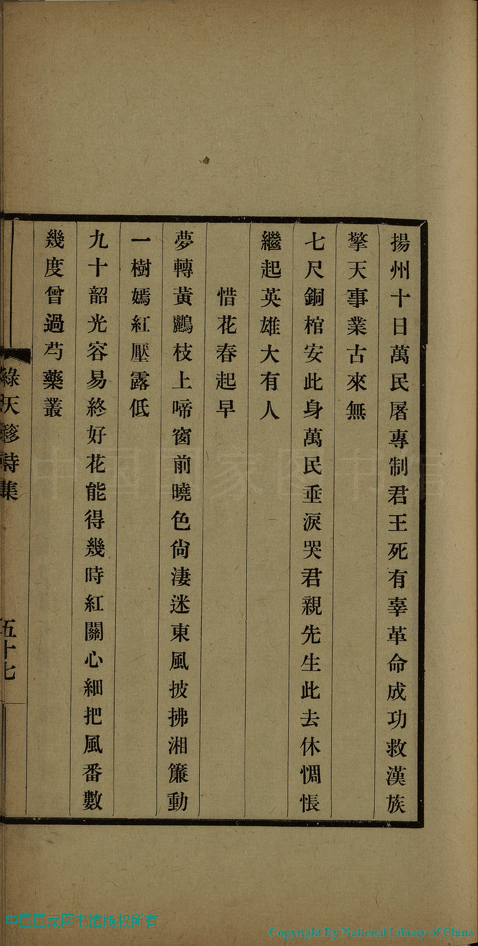 揚州十日萬民屠專制君王死有辜革命成功救漢族
擎天事業古來無
七尺銅棺安此身萬民垂淚哭君親先生此去休惆悵
繼起英雄大有人
惜花春起早
夢轉黃鸝枝上啼窗前曉色尙淒迷東風披拂湘簾動
一樹嫣紅壓露低
九十韶光容易終好花能得幾時紅關心細把風番數
幾度曾過芍藥叢
綠天簃詩集
五十七
Copyright By National Library of China